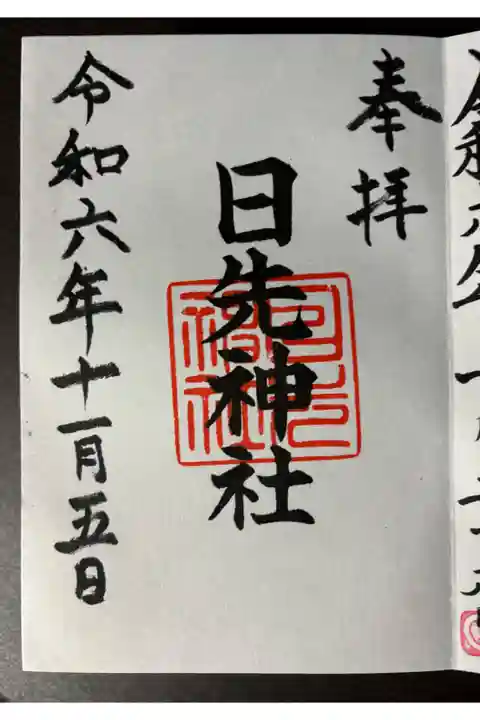 奉拝
日先神社
令和六年十一月五日